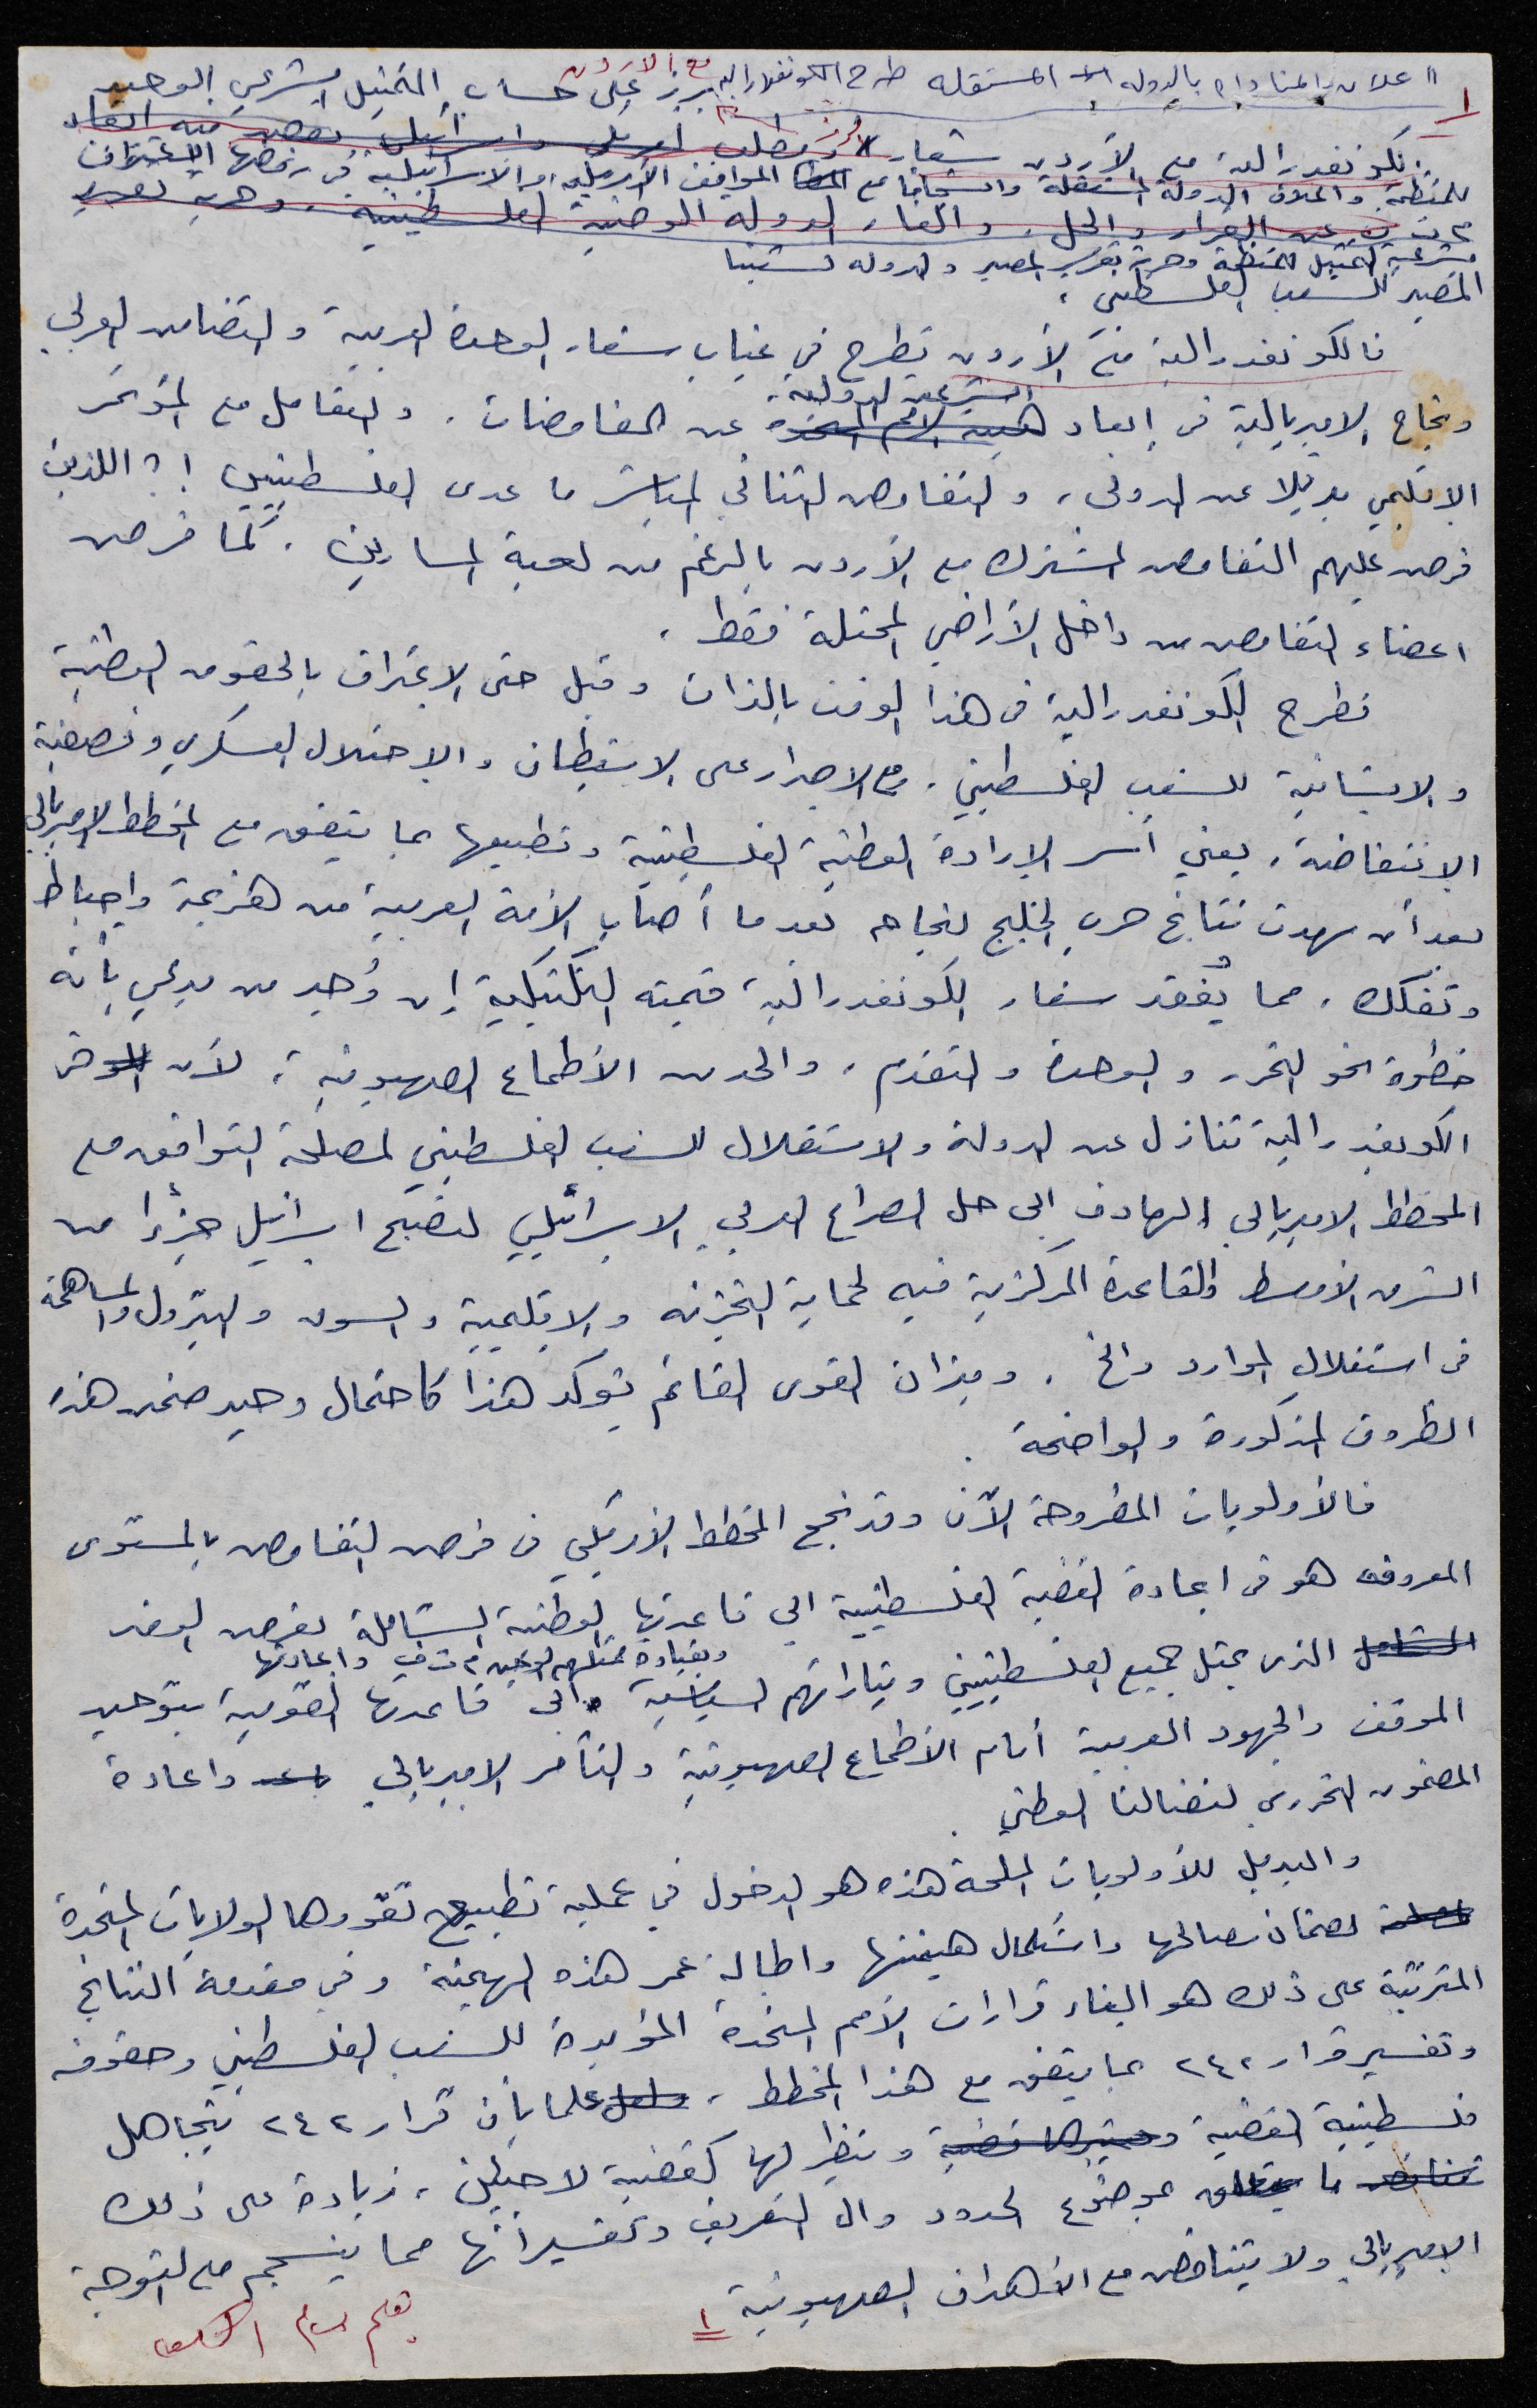 اعلان والمناداه بالدوله المستقله طرح الكونفدراليه مع الاردن برز على حساب التمثيل الشرعي الوحيد
١
الكونفدرالية مع الأردن شعار
للمنظمة واعلان الدولة المستقلة وانسجاما مع المواقف الأمريكية والاسرائيلية في رفضها الاعتراف
م ت ف عن القرار والحل، والغاء الدوله الوطنيه الفلسطينية، وحرية تقرير
بشرعية تمثيل المنظمة وحرية تقرير المصير والدوله لشعبنا
المصير للشعب الفلسطيني،
فالكونفدرالية مع الأردن تطرح في غياب شعار الوحدة العربية والتضامن العربي
الشرعية الدولية
ونجاح الامبريالية في إبعاد هيئة الأمم المتحدة عن المفاوضات، والتعامل مع المؤتمر
الاقليمي بديلا عن الدولي، والتفاوض الثنائي المباشر ما عدى الفلسطينيين !؟ اللذين
فرض عليهم التفاوض المشترك مع الأردن بالرغم من لعبة المسارين. كما فرض
اعضاء التفاوض من داخل الأراضي المحتلة فقط.
تطرح الكونفدرالية في هذا الوقت بالذات وقبل حتى الاعتراف بالحقوق الوطنية
والانسانية للشعب الفلسطيني، مع الاصرار على الاستيطان والاحتلال العسكري وتصفية
الانتفاضة، يعني أسر الإرادة الوطنية الفلسطينية وتطبيعها بما يتفق مع المخطط الامبريالي
بعد أن مهدت نتائج حرب الخليج لنجاحه بعد ما أصاب الأمة العربية من هزيمة واحباط
وتفكك. مما يُفقد شعار الكونفدرالية قيمته التكتيكية إن وُجد من يدعي بأنه
خطوة نحو التحرر والوحدة والتقدم، والحد من الأطماع الصهيونية، لأن
الكونفدرالية تنازل عن الدولة والاستقلال للشعب الفلسطيني لمصلحة التوافق مع
المخطط الامبريالي الهادف إلى حل الصراع العربي الاسرائيلي لتصبح اسرائيل جزءا من
الشرق الأوسط والقاعدة المركزية فيه لحماية التجزئة والاقليمية والسوق والبترول والمساهمة
في استغلال الموارد والخ. وميزان القوى القائم يؤكد هذا كاحتمال وحيد ضمن هذه
الظروف المذكورة والواضحة.
فالأولويات المطروحة الآن وقد نجح المخطط الأمريكي في فرض التفاوض بالمستوى
المعروف هو في اعادة القضية الفلسطينية الى قاعدتها الوطنية الشاملة بفرض الوفد
وبقيادة ممثلهم الوحيد م ت ف واعادتها
الذي يمثل جميع الفلسطينيين وتياراتهم السياسية الى قاعدتها القومية بتوحيد
الموقف والجهود العربية أمام الأطماع الصهيونية والتآمر الامبريالي واعادة
المضمون التحرري لنضالنا الوطني.
والبديل للأولويات الملحة هذه هو الدخول في عملية تطبيع تقودها الولايات المتحدة
لضمان مصالحها واستكمال هيمنتها واطالة عمر هذه الهيمنة وفي مقدمة النتائج
المترتبة على ذلك هو الغاء قرارات الأمم المتحدة المؤيدة للشعب الفلسطيني وحقوقه
وتفسير قرار ٢٤٢ بما يتفق مع هذا المخطط، علما بأن قرار ٢٤٢ يتجاهل
فلسطينية القضية وينظر لها كقضية لاجئين، زيادة على ذلك
ما يتعلق بموضوع الحدود وال التعريف وتفسيراتها مما ينسجم مع التوجه
الامبريالي ولا يتناقض مع الأهداف الصهيونية
١
بقلم